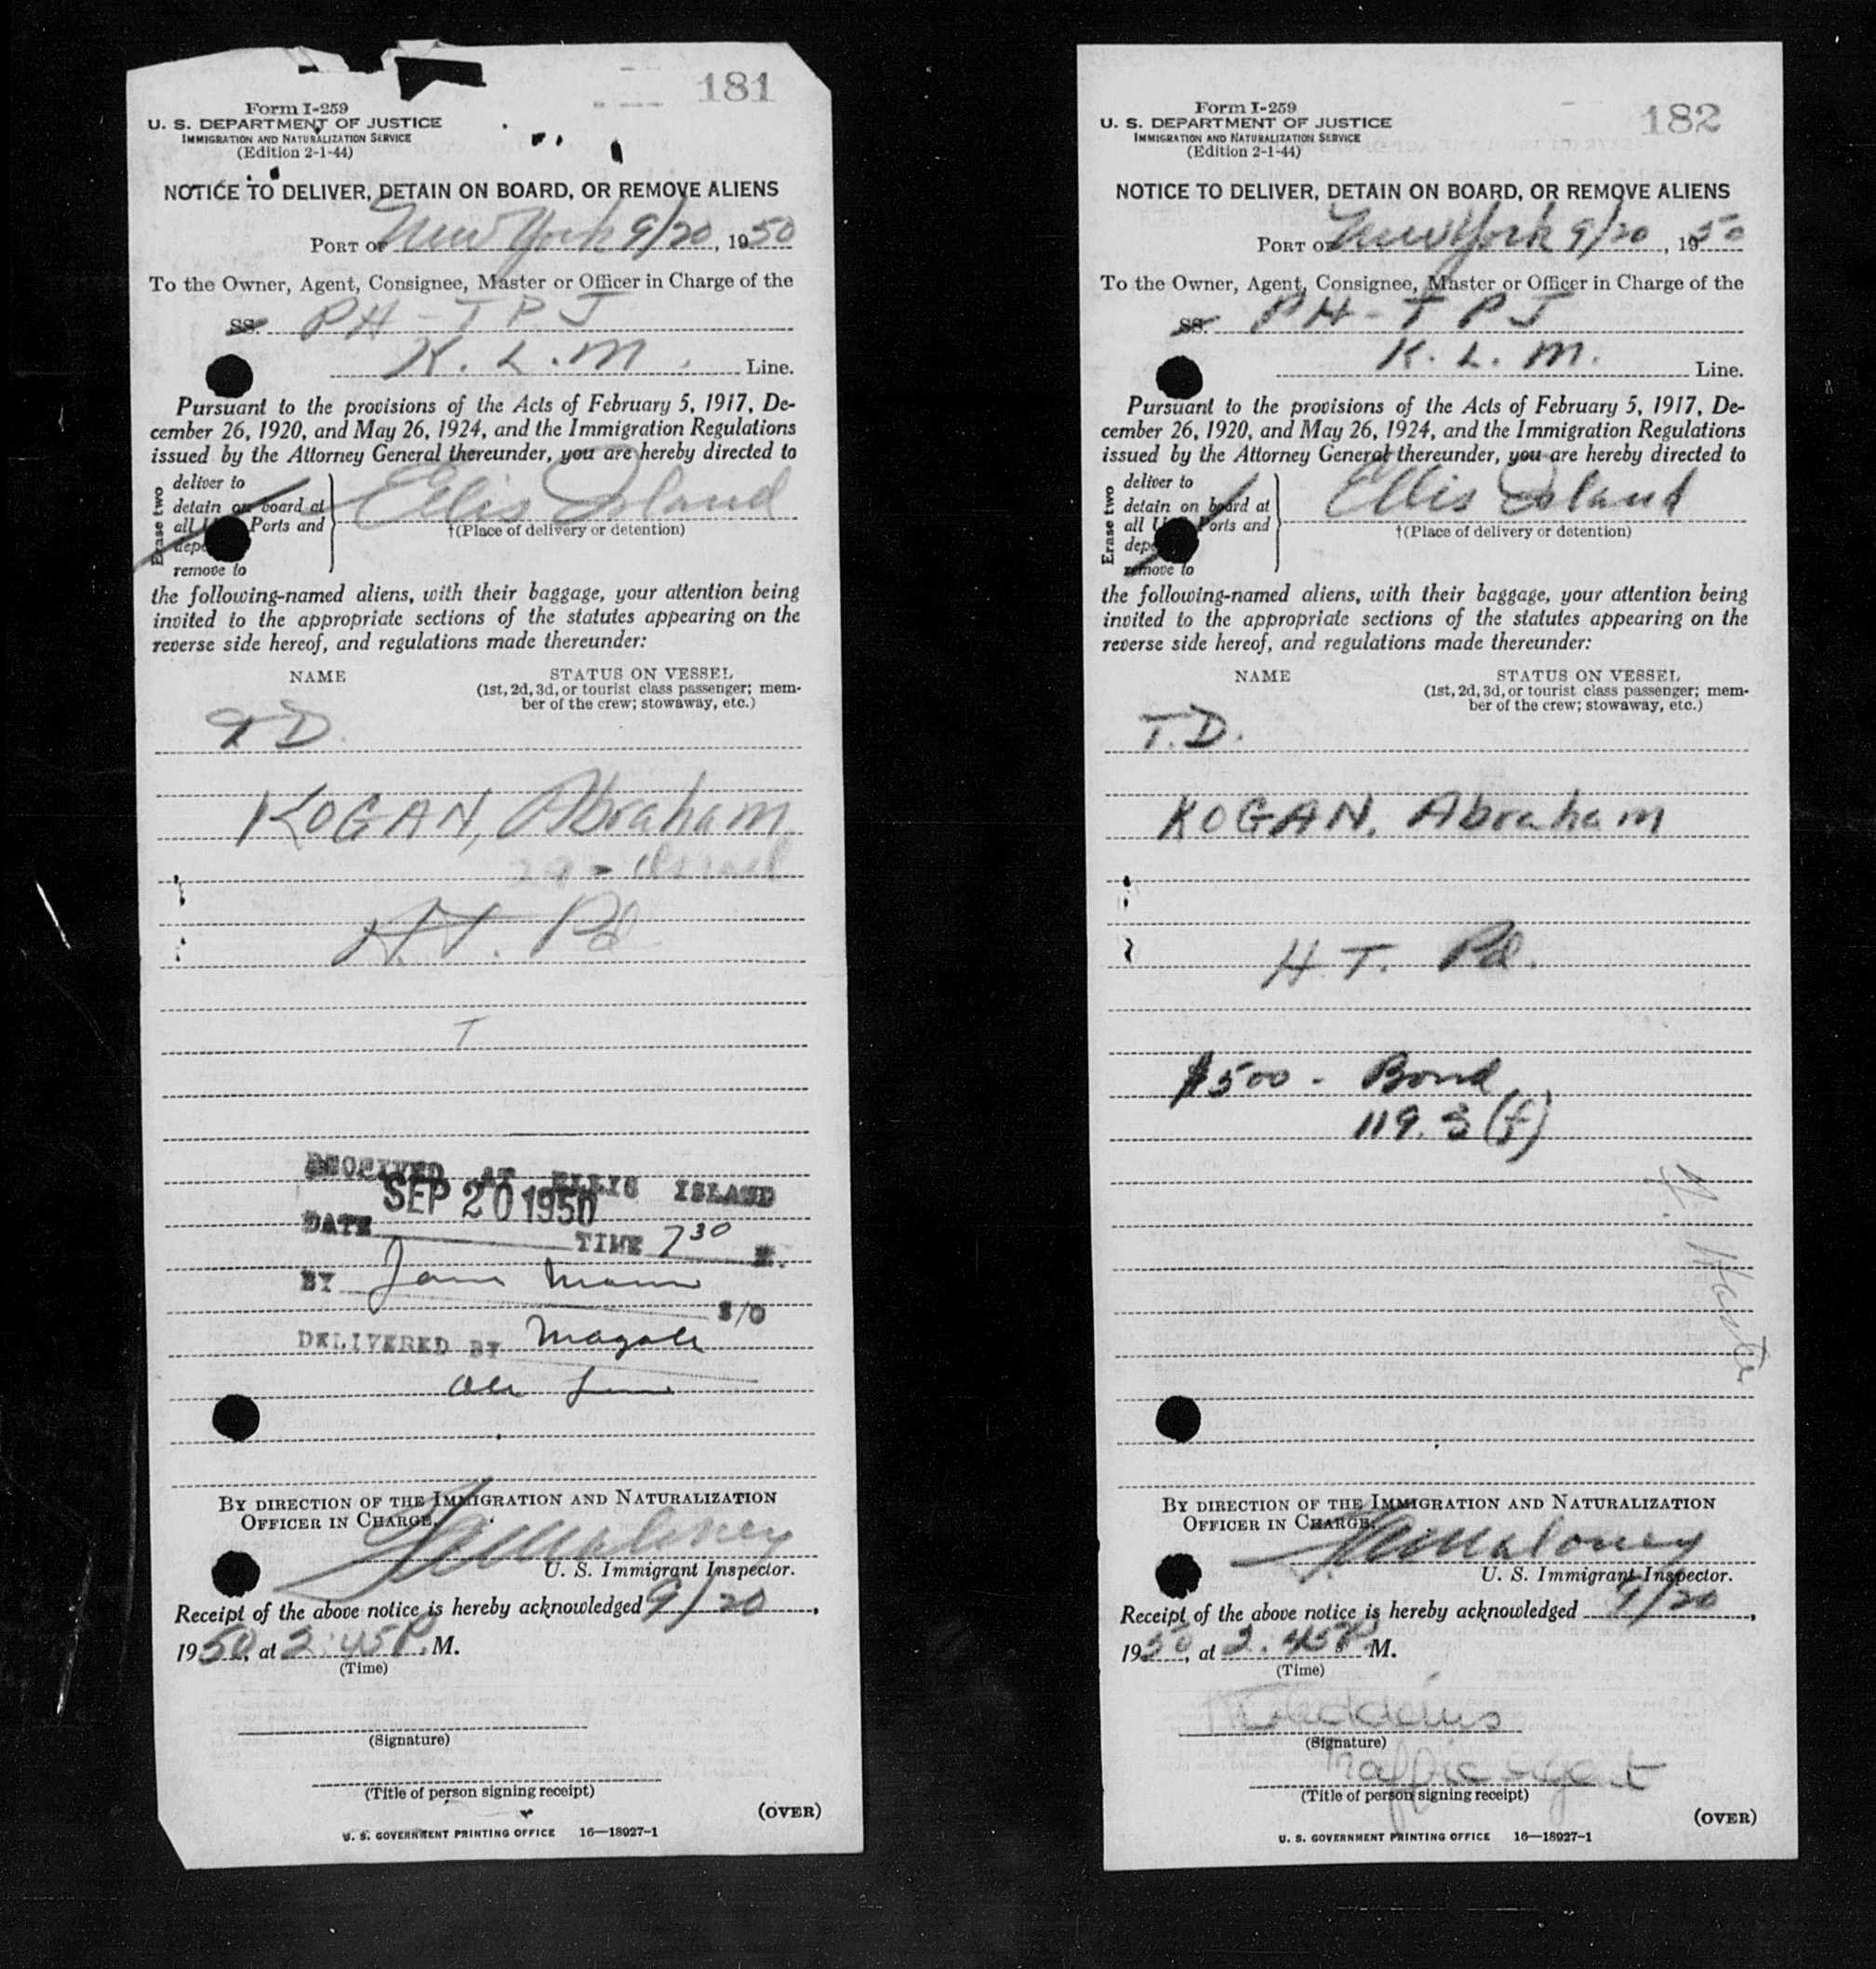 181
Form I-259
U. S. DEPARTMENT OF JUSTICE
IMMIGRATION AND NATURALIZATION SERVICE
(Edition 2-1-44)
NOTICE TO DELIVER, DETAIN ON BOARD, OR REMOVE ALIENS
PORT OF New York 9/20, 1950
To the Owner, Agent, Consignee, Master or Officer in Charge of the
SS. PH-TPJ
K. L. M. Line.
Pursuant to the provisions of the Acts of February 5, 1917, De-
cember 26, 1920, and May 26, 1924, and the Immigration Regulations
issued by the Attorney General thereunder, you are hereby directed to
Erase two
deliver to
detain on board at
all U Ports and
dep
remove to
Ellis Island
†(Place of delivery or detention)
the following-named aliens, with their baggage, your attention being
invited to the appropriate sections of the statutes appearing on the
reverse side hereof, and regulations made thereunder:
NAME
STATUS ON VESSEL
(1st, 2d, 3d, or tourist class passenger; mem-
ber of the crew; stowaway, etc.)
T D.
KOGAN, Abraham
H.T. Pd
T
RECEIVED AT ELLIS ISLAND
SEP 20 1950
DATE TIME 7 30 M.
BY
DELIVERED BY
BY DIRECTION OF THE IMMIGRATION AND NATURALIZATION
OFFICER IN CHARGE,
Maloney
U. S. Immigrant Inspector.
Receipt of the above notice is hereby acknowledged 9/20,
1950, at 2:45 P. M.
(Time)
(Signature)
(Title of person signing receipt)
(OVER)
U. S. GOVERNMENT PRINTING OFFICE 16—18927-1
182
Form I-259
U. S. DEPARTMENT OF JUSTICE
IMMIGRATION AND NATURALIZATION SERVICE
(Edition 2-1-44)
NOTICE TO DELIVER, DETAIN ON BOARD, OR REMOVE ALIENS
PORT OF New York 9/20, 1950
To the Owner, Agent, Consignee, Master or Officer in Charge of the
SS. PH-TPJ
K. L. M. Line.
Pursuant to the provisions of the Acts of February 5, 1917, De-
cember 26, 1920, and May 26, 1924, and the Immigration Regulations
issued by the Attorney General thereunder, you are hereby directed to
Erase two
deliver to
detain on board at
all U Ports and
dep
remove to
Ellis Island
†(Place of delivery or detention)
the following-named aliens, with their baggage, your attention being
invited to the appropriate sections of the statutes appearing on the
reverse side hereof, and regulations made thereunder:
NAME
STATUS ON VESSEL
(1st, 2d, 3d, or tourist class passenger; mem-
ber of the crew; stowaway, etc.)
T.D.
KOGAN, Abraham
H.T. Pd.
$500 - Bond
119.3(f)
BY DIRECTION OF THE IMMIGRATION AND NATURALIZATION
OFFICER IN CHARGE,
Maloney
U. S. Immigrant Inspector.
Receipt of the above notice is hereby acknowledged 9/20,
1950, at 2:45 P. M.
(Time)
(Signature)
Traffic agent
(Title of person signing receipt)
(OVER)
U. S. GOVERNMENT PRINTING OFFICE 16—18927-1